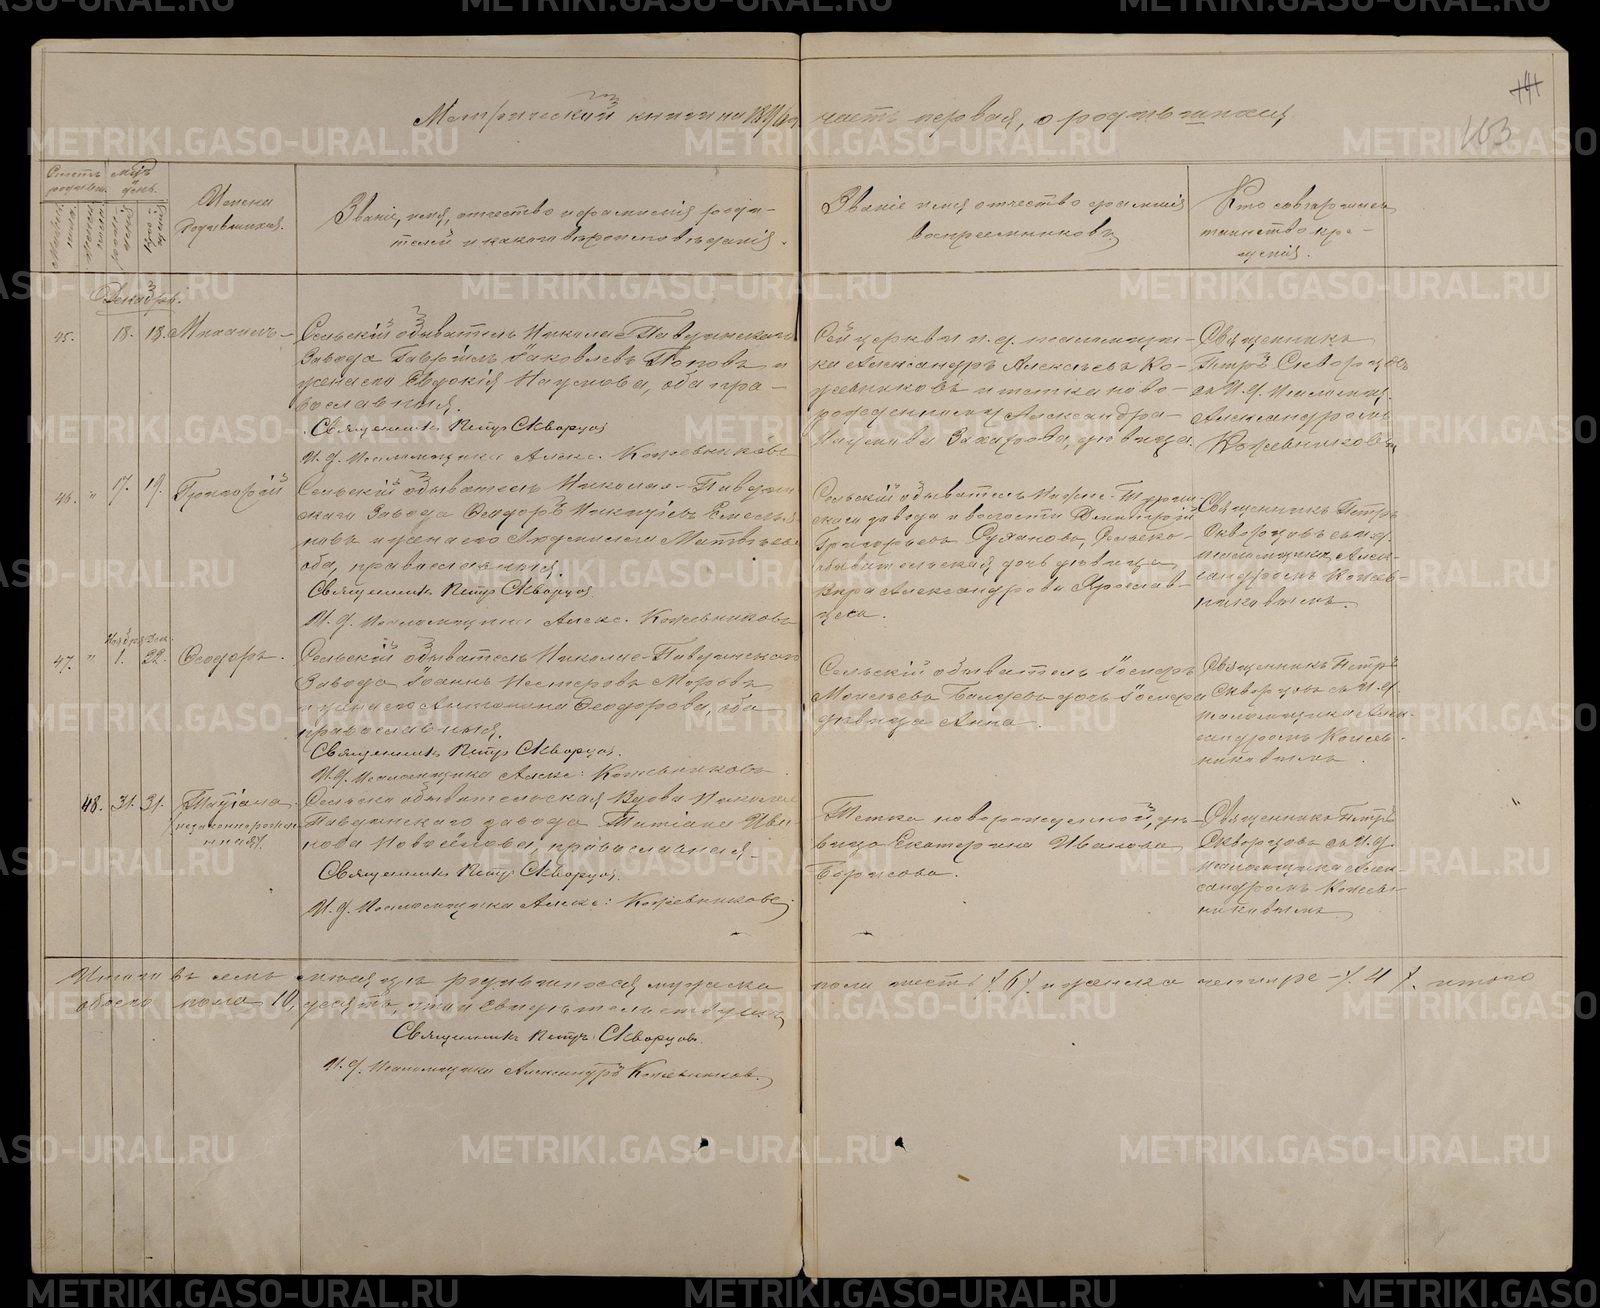 Метрической книги на 189 годъ часть первая, о родившихся
103
Счетъ родивш.
Мѣс. день.
Имена родившихся.
Званіе, имя, отчество и фамилія родителей и какого вѣроисповѣданія.
Званіе имя отчество фамилія воспреемниковъ
Кто совершалъ таинство крещенія.
Декабрь.
45. 18. 18. Михаилъ
Сельскій обыватель Николае-Павдинскаго
Завода Гавріилъ Іаковлевъ Поповъ и
жена его Евдокія Наумова, оба пра-
вославныя.
Священникъ Петръ Скворцов
И. д. псаломщика Алекс. Кожевниковъ
Сей церкви и. д. псаломщи-
ка Александръ Алексѣевъ Ко-
жевниковъ и тетка ново-
рожденнаго Александра
Захарова, дѣвица.
Священникъ
Петръ Скворцовъ
съ И. д. псаломщ.
Александромъ
Кожевниковым
46. " 17. 19. Григорій
Сельскій обыватель Николае-Павдин
скаго Завода Ѳеодоръ Никитинъ Емелья
новъ и жена его Людмила Матвѣева
оба, православныя.
Священникъ Петръ Скворцов
И. д. псаломщика Алекс. Кожевниковъ
Сельскій обыватель Нижне-Турин
скаго завода и волости Димитрій
Григорьевъ Сухановъ, Сельско-
обывательская дочь дѣвица
Вѣра Александрова Ярослав-
цева.
Священникъ Петръ
Скворцовъ съ и. д.
псаломщика Алек-
сандромъ Кожев-
никовымъ.
Ноябр. Дек.
47. " 1. 22. Ѳеодоръ.
Сельскій обыватель Николае-Павдинскаго
Завода Іоаннъ Нестеровъ Моровъ
и жена его Антонина Ѳеодорова, оба
православныя.
Священникъ Петръ Скворцов.
И. д. псаломщика Алекс: Кожевниковъ
Сельскій обыватель Іосифъ
Моисеевъ дочь Іосифа
дѣвица Анна.
Священникъ Петръ
Скворцовъ съ И. д.
псаломщика Алек-
сандромъ Кожев-
никовымъ.
48. 31. 31. Татіана
незаконнорожден-
ная.
Сельско обывательская Вдова Николае
Павдинскаго завода Татіана Ива
нова Новосёлова, православная.
Священникъ Петръ Скворцов.
И. д. псаломщика Алекс: Кожевниковъ
Тетка новорожденной, дѣ-
вица Екатерина Иванова
Борисова.
Священникъ Петръ
Скворцовъ съ И. д.
псаломщика Алек-
сандромъ Кожев-
никовымъ
Итого въ семъ мѣсяцѣ родившихся мужска пола шесть /. 6 /. и женска четыре /. 4 /. итого
обоего пола 10, десять, что и свидѣтельствуемъ
Священникъ Петръ Скворцовъ.
И. д. псаломщика Александръ Кожевников.
METRIKI.GASO-URAL.RU